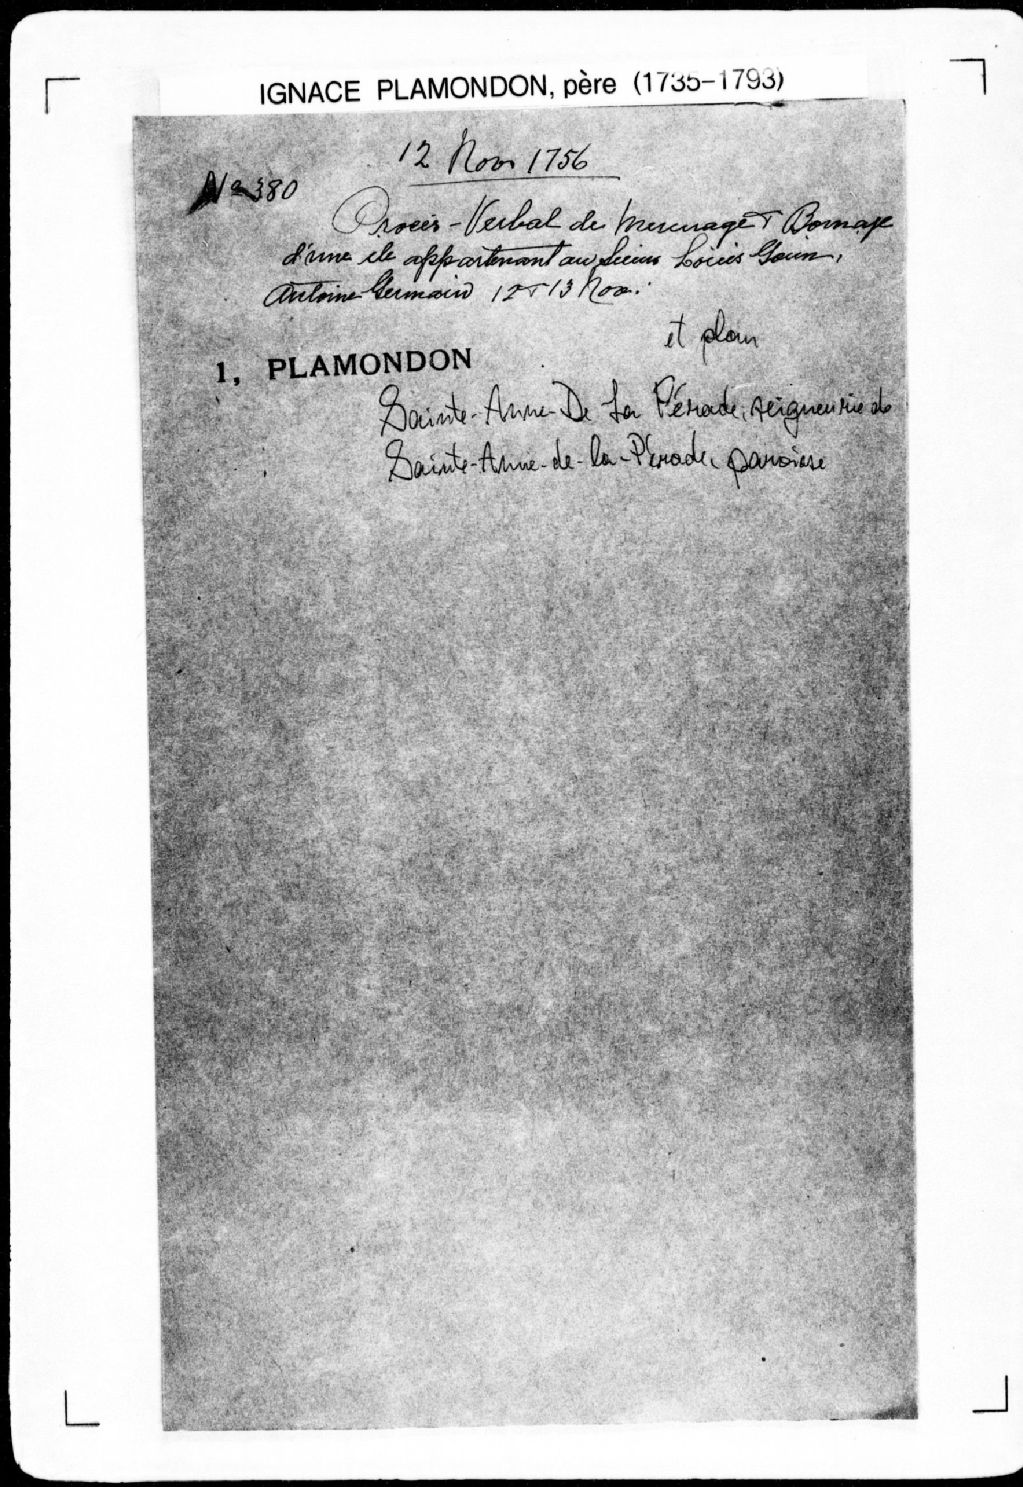 IGNACE PLAMONDON, père (1735-1793)
12 Nov 1756
No 380
Procès-Verbal de mesurage & Bornage
d'une ile appartenant au Sieurs Louis Gouin,
Antoine Germain 12 & 13 Nov.
et plan
1, PLAMONDON
Sainte-Anne-De La Pérade, seigneurie de
Sainte-Anne-de-la-Pérade, paroisse